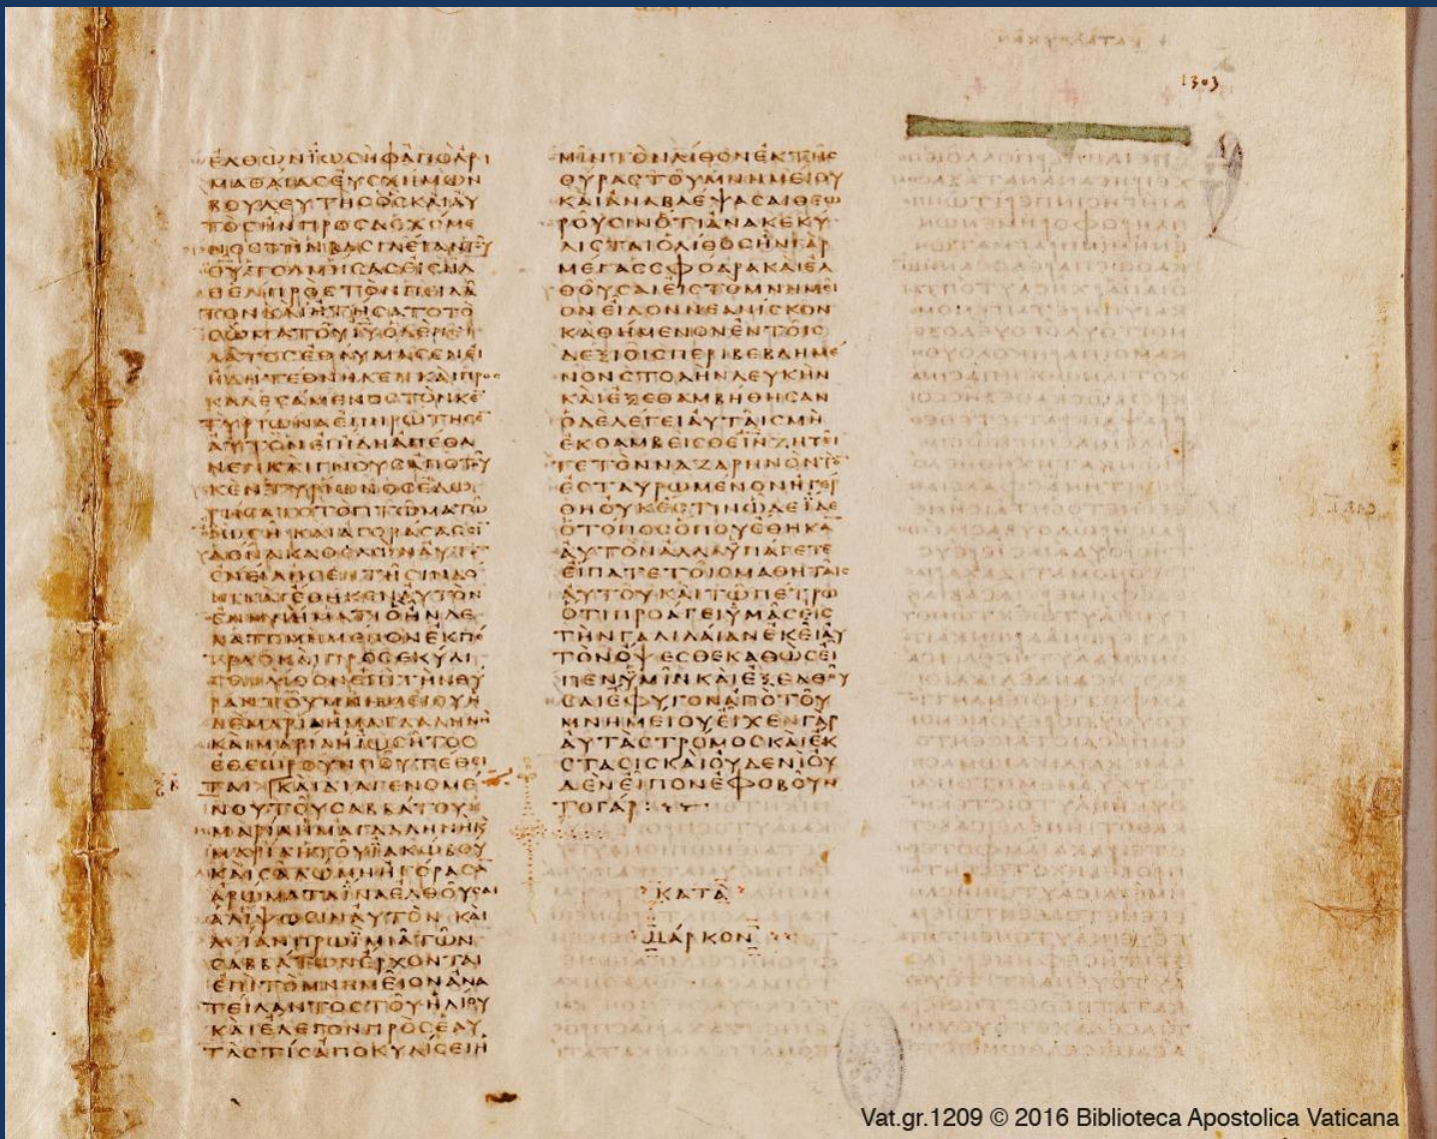 ΕΛΘΩΝΪΩϹΗΦΑΠΟΑΡΙ
ΜΑΘΑΙΑϹΕΥϹΧΗΜΩΝ
ΒΟΥΛΕΥΤΗϹΟϹΚΑΙΑΥ
ΤΟϹΗΝΠΡΟϹΔΕΧΟΜΕ
ΝΟϹΤΗΝΒΑϹΙΛΕΙΑΝΤΟΥ
ΘΥΤΟΛΜΗϹΑϹΕΙϹΗΛ
ΘΕΝΠΡΟϹΤΟΝΠΕΙΛΑ
ΤΟΝΚΑΙΗΤΗϹΑΤΟΤΟ
ϹΩΜΑΤΟΥΙΥΟΔΕΠΕΙ
ΛΑΤΟϹΕΘΑΥΜΑϹΕΝΕΙ
ΗΔΗΤΕΘΝΗΚΕΝΚΑΙΠΡΟϹ
ΚΑΛΕϹΑΜΕΝΟϹΤΟΝΚΕ
ΤΥΡΙΩΝΑΕΠΗΡΩΤΗϹΕ
ΑΥΤΟΝΕΙΗΔΗΑΠΕΘΑ
ΝΕΝΚΑΙΓΝΟΥϹΑΠΟΤΟΥ
ΚΕΝΤΥΡΙΩΝΟϹΕΔΩ
ΡΗϹΑΤΟΤΟΠΤΩΜΑΤΩ
ΪΩϹΗΚΑΙΑΓΟΡΑϹΑϹϹΙ
ΔΟΝΑΚΑΘΕΛΩΝΑΥΤΟ
ΕΝΕΙΛΗϹΕΝΤΗϹΙΝΔΟ
ΝΙΚΑΙΕΘΗΚΕΝΑΥΤΟΝ
ΕΝΜΝΗΜΑΤΙΟΗΝΛΕ
ΛΑΤΟΜΗΜΕΝΟΝΕΚΠΕ
ΤΡΑϹΚΑΙΠΡΟϹΕΚΥΛΙ
ϹΕΝΛΙΘΟΝΕΠΙΤΗΝΘΥ
ΡΑΝΤΟΥΜΝΗΜΕΙΟΥΗ
ΔΕΜΑΡΙΑΗΜΑΓΔΑΛΗΝΗ
ΚΑΙΜΑΡΙΑΗΪΩϹΗΤΟϹ
ΕΘΕΩΡΟΥΝΠΟΥΤΕΘΕΙ
ΤΑΙΚΑΙΔΙΑΓΕΝΟΜΕ
ΝΟΥΤΟΥϹΑΒΒΑΤΟΥ
ΜΑΡΙΑΗΜΑΓΔΑΛΗΝΗΚ
ΜΑΡΙΑΗΤΟΥΪΑΚΩΒΟΥ
ΚΑΙϹΑΛΩΜΗΗΓΟΡΑϹΑ
ΑΡΩΜΑΤΑΪΝΑΕΛΘΟΥϹΑΙ
ΑΛΙΨΩϹΙΝΑΥΤΟΝ ΚΑΙ
ΛΙΑΝΠΡΩΪΜΙΑΤΩΝ
ϹΑΒΒΑΤΩΝΕΡΧΟΝΤΑΙ
ΕΠΙΤΟΜΝΗΜΕΙΟΝΑΝΑ
ΤΕΙΛΑΝΤΟϹΤΟΥΗΛΙΟΥ
ΚΑΙΕΛΕΓΟΝΠΡΟϹΕΑΥ
ΤΑϹΤΙϹΑΠΟΚΥΛΙϹΕΙΗ
ΜΙΝΤΟΝΛΙΘΟΝΕΚΤΗϹ
ΘΥΡΑϹΤΟΥΜΝΗΜΕΙΟΥ
ΚΑΙΑΝΑΒΛΕΨΑϹΑΙΘΕΩ
ΡΟΥϹΙΝΟΤΙΑΝΑΚΕΚΥ
ΛΙϹΤΑΙΟΛΙΘΟϹΗΝΓΑΡ
ΜΕΓΑϹϹΦΟΔΡΑΚΑΙΕΛ
ΘΟΥϹΑΙΕΙϹΤΟΜΝΗΜΕΙ
ΟΝΕΙΔΟΝΝΕΑΝΙϹΚΟΝ
ΚΑΘΗΜΕΝΟΝΕΝΤΟΙϹ
ΔΕΞΙΟΙϹΠΕΡΙΒΕΒΛΗΜΕ
ΝΟΝϹΤΟΛΗΝΛΕΥΚΗΝ
ΚΑΙΕΞΕΘΑΜΒΗΘΗϹΑΝ
ΟΔΕΛΕΓΕΙΑΥΤΑΙϹΜΗ
ΕΚΘΑΜΒΕΙϹΘΕΙΝΖΗΤΕΙ
ΤΕΤΟΝΝΑΖΑΡΗΝΟΝΤΟ
ΕϹΤΑΥΡΩΜΕΝΟΝΗΓΕΡ
ΘΗΟΥΚΕϹΤΙΝΩΔΕΪΔΕ
ΟΤΟΠΟϹΟΠΟΥΕΘΗΚΑ
ΑΥΤΟΝΑΛΛΑΫΠΑΓΕΤΕ
ΕΙΠΑΤΕΤΟΙϹΜΑΘΗΤΑΙϹ
ΑΥΤΟΥΚΑΙΤΩΠΕΤΡΩ
ΟΤΙΠΡΟΑΓΕΙΫΜΑϹΕΙϹ
ΤΗΝΓΑΛΙΛΑΙΑΝΕΚΕΙΑΥ
ΤΟΝΟΨΕϹΘΕΚΑΘΩϹΕΙ
ΠΕΝΫΜΙΝΚΑΙΕΞΕΛΘΟΥ
ϹΑΙΕΦΥΓΟΝΑΠΟΤΟΥ
ΜΝΗΜΕΙΟΥΕΙΧΕΝΓΑΡ
ΑΥΤΑϹΤΡΟΜΟϹΚΑΙΕΚ
ϹΤΑϹΙϹΚΑΙΟΥΔΕΝΙΟΥ
ΔΕΝΕΙΠΟΝΕΦΟΒΟΥΝ
ΤΟΓΑΡ:
ΚΑΤΑ
ΜΑΡΚΟΝ
1303
Vat.gr.1209 © 2016 Biblioteca Apostolica Vaticana